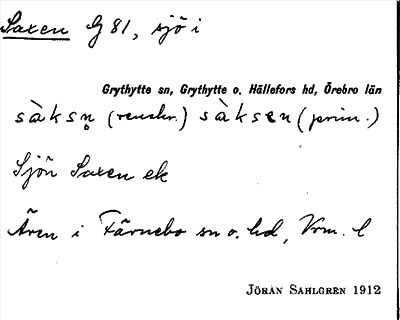 Saxen G 81, sjö i
Grythytte sn, Grythytte o. Hällefors hd, Örebro län
sàksn̥ (renskr.) sàksen (prim.)
Sjön Saxen ek
Ären i Färnebo sn o. hd, Vrm. l
JÖRAN SAHLGREN 1912